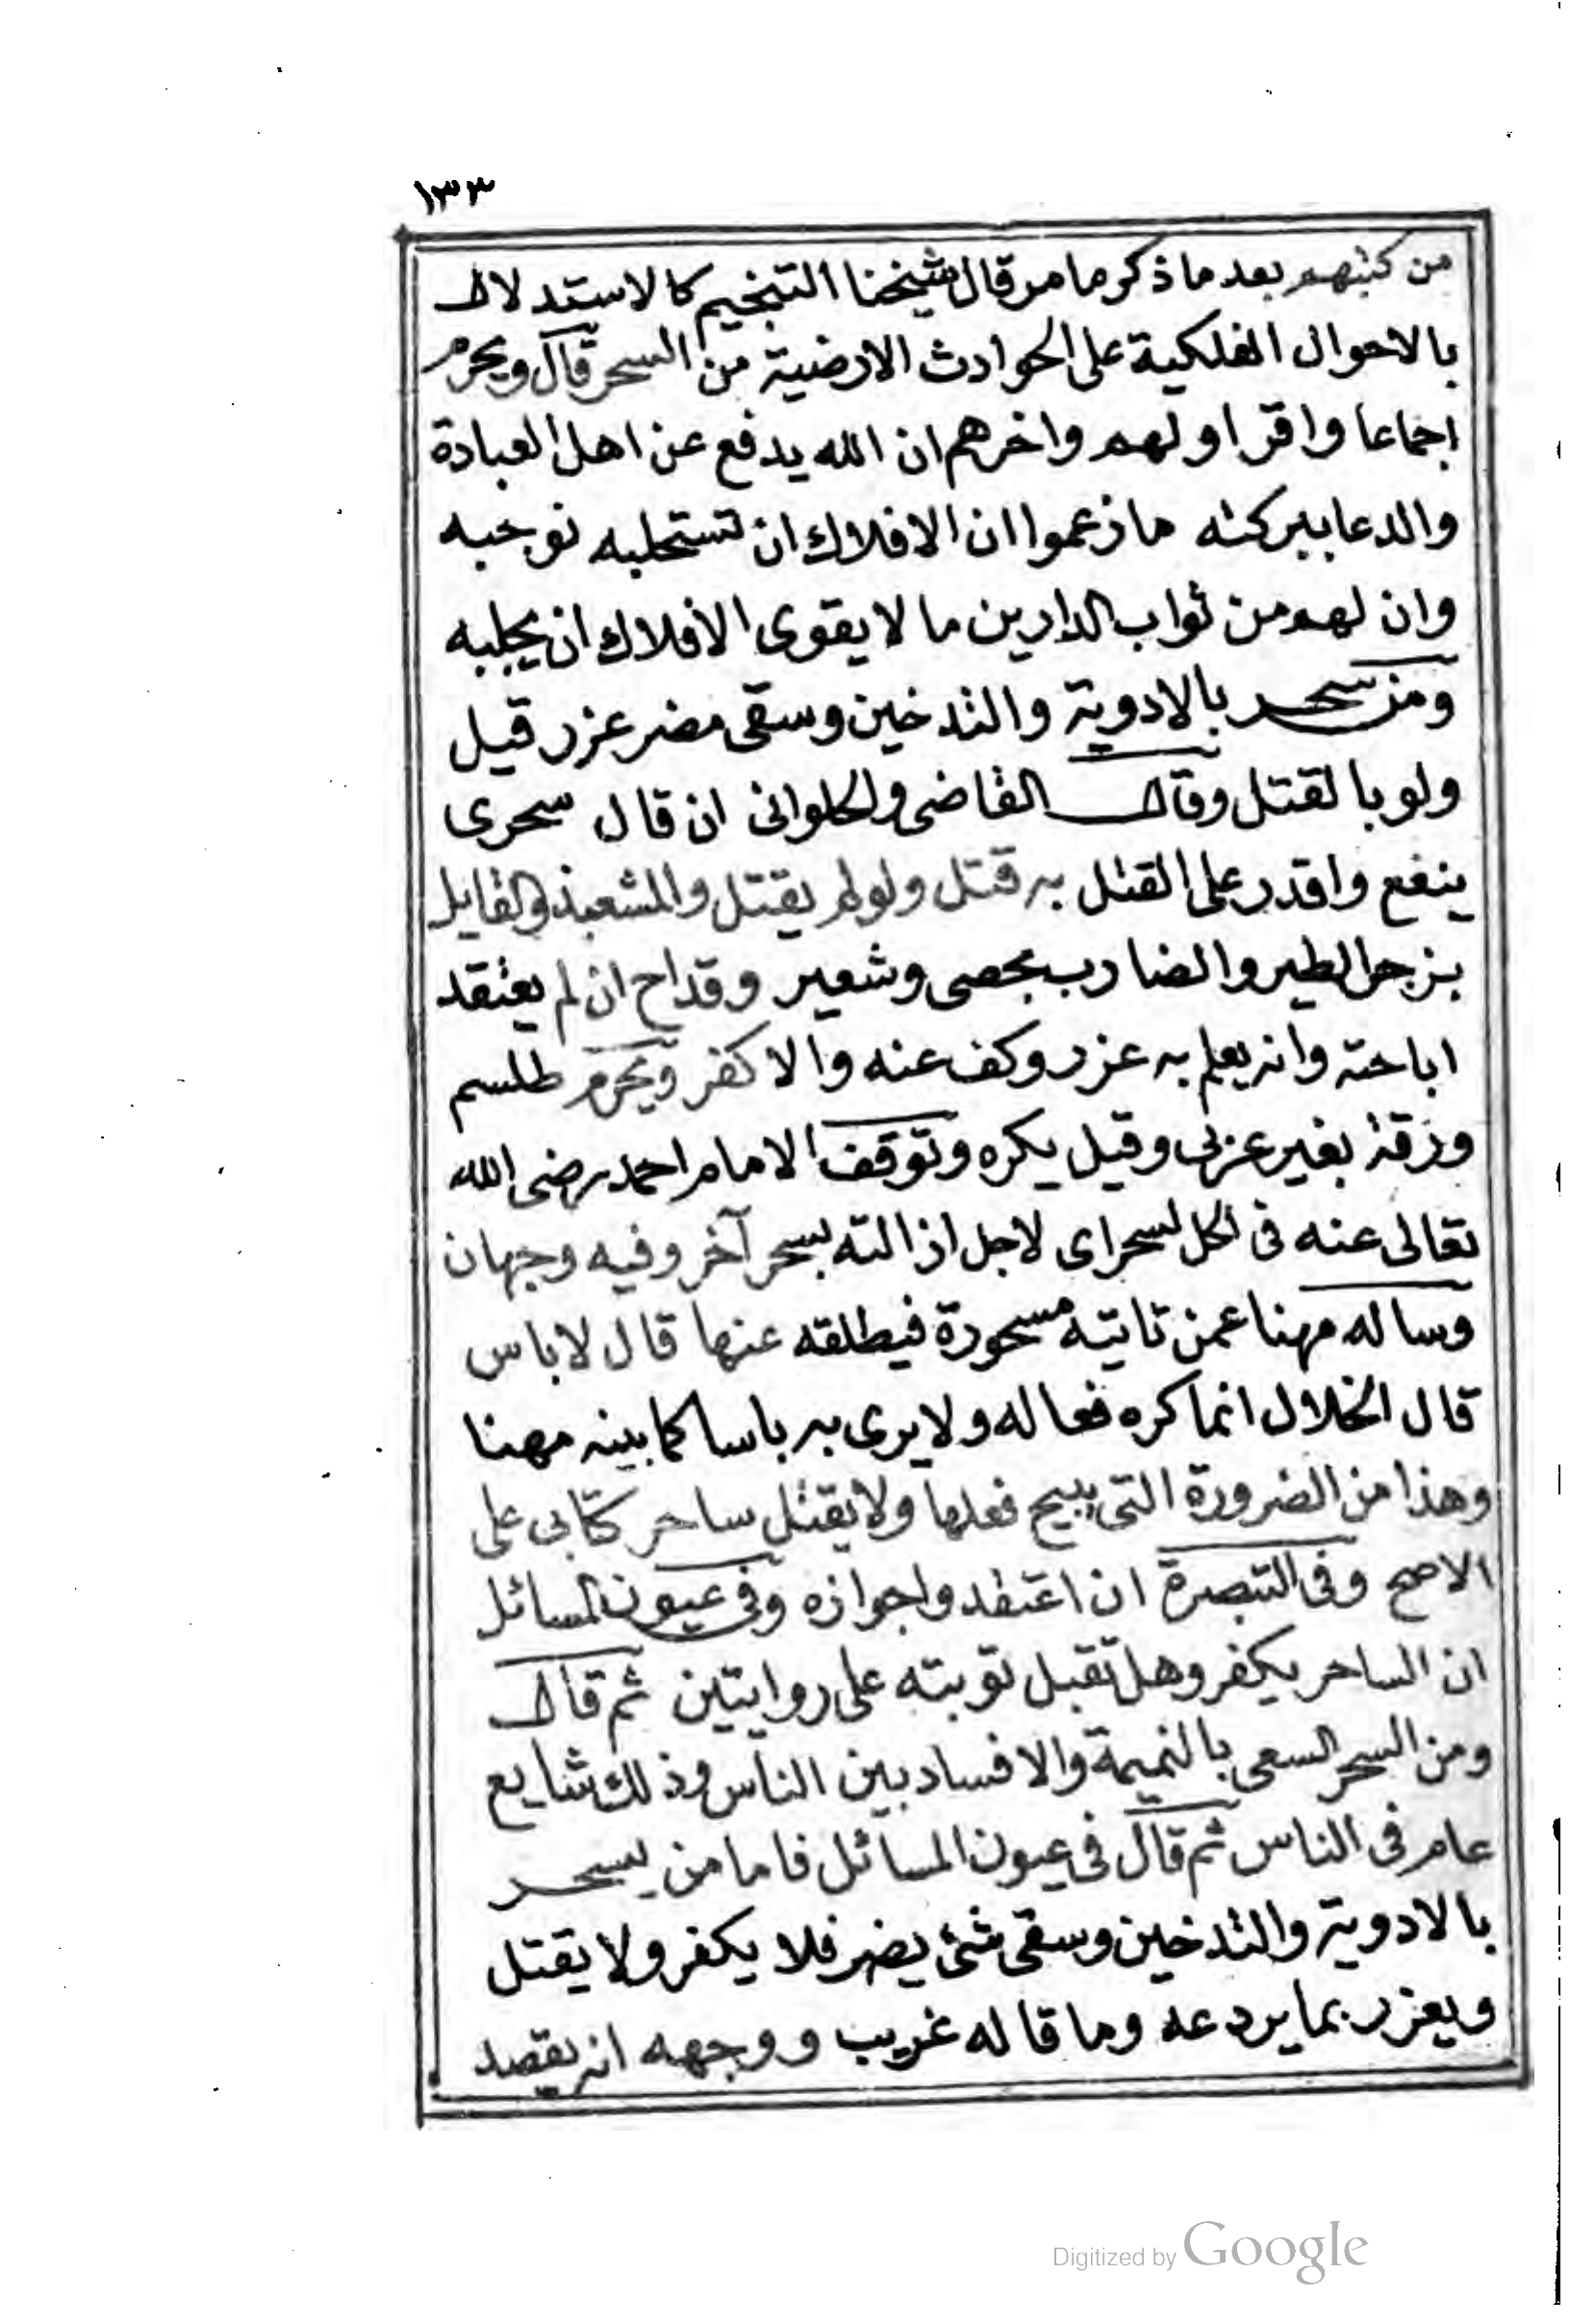 ١٣٣
من كتبهم بعد ما ذكر ما مر قال شيخنا التنجيم كالاستدلال
بالاحوال الفلكية على الحوادث الارضية من السحر قال ويحرم
اجماعا واقر اولهم واخرهم ان الله يدفع عن اهل العبادة
والدعا ببركته ما زعموا ان الافلاك ان تستجلبه توجبه
وان لهم من ثواب الدارين ما لا يقوى الافلاك ان يجلبه
ومن سحر بالادوية والتدخين وسقى مضر عزر قيل
ولو بالقتل وقال القاضى والحلوانى ان قال سحرى
ينفع واقدر على القتل به قتل ولو لم يقتل والمشعبذ والقايل
بزجر الطير والضارب بحصى وشعير وقداح ان لم يعتقد
اباحته وانه يعلم به عزر وكف عنه والا كفر ويحرم طلسم
ورقية بغير عربى وقيل يكره وتوقف الامام احمد رضى الله
تعالى عنه فى الحل لسحر اى لاجل ازالته بسحر آخر وفيه وجهان
وساله مهنا عمن تاتيه مسحورة فيطلقه عنها قال لا باس
قال الخلال انما كره فعاله ولا يرى به باسا كما بينه مهنا
وهذا من الضرورة التى يبيح فعلها ولا يقتل ساحر كتابى على
الاصح وفى التبصرة ان اعتقدوا جوازه وفى عيون المسائل
ان الساحر يكفر وهل تقبل توبته على روايتين ثم قال
ومن السحر السعى بالنميمة والافساد بين الناس وذلك شايع
عام فى الناس ثم قال فى عيون المسائل فاما من يسحر
بالادوية والتدخين وسقى شئ يضر فلا يكفر ولا يقتل
ويعزر بما يردعه وما قاله غريب ووجهه انه يقصد
Digitized by Google